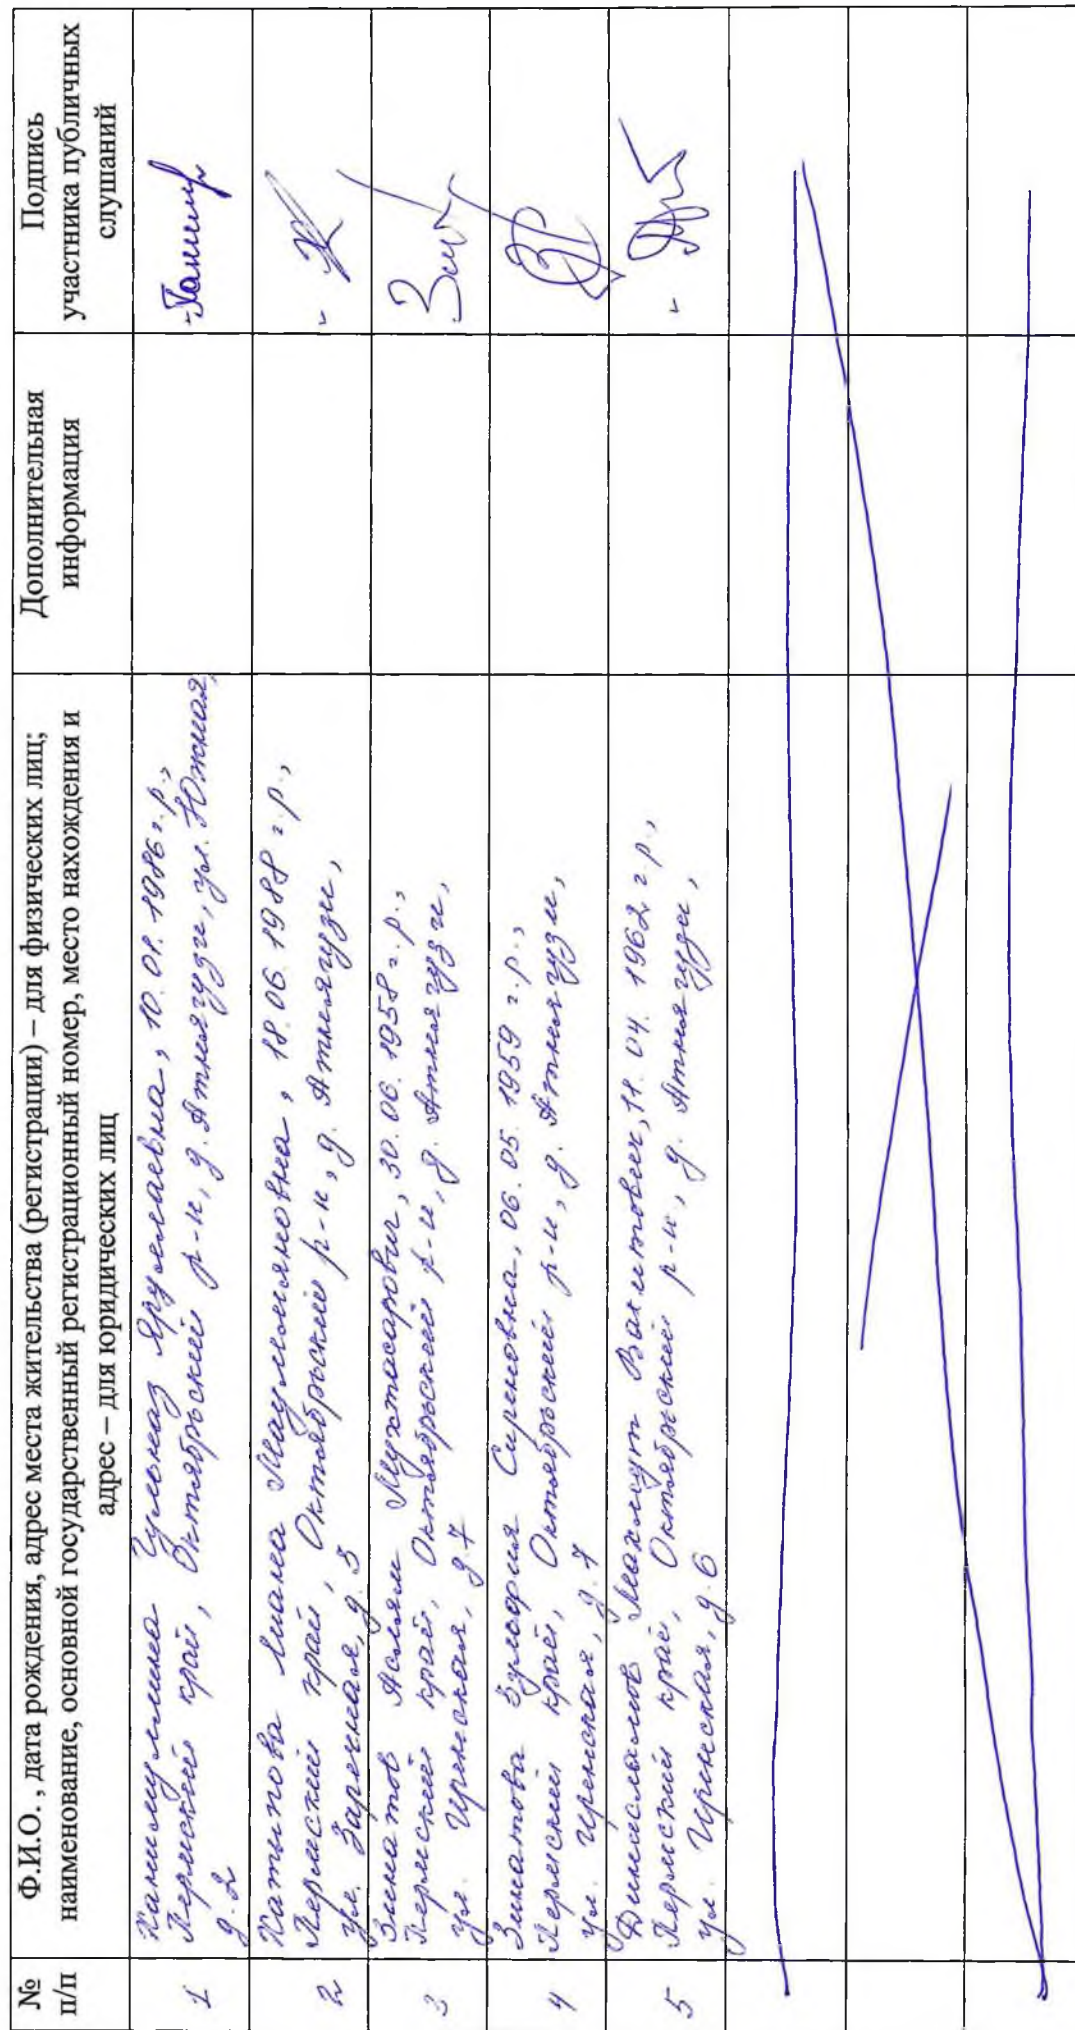 №
п/п
Ф.И.О. , дата рождения, адрес места жительства (регистрации) – для физических лиц;
наименование, основной государственный регистрационный номер, место нахождения и
адрес – для юридических лиц
Дополнительная
информация
Подпись
участника публичных
слушаний
1
Ханимуллина Гульназ Яруллаевна, 10.01.1986 г.р.,
Пермский край, Октябрьский р-н, д. Атнягузи, ул. Южная,
д. 2
2
Хатыпова Лиана Маульяновна, 18.06.1988 г.р.,
Пермский край, Октябрьский р-н, д. Атнягузи,
ул. Заречная, д. 3
3
Зинатов Аслям Мухтасарович, 30.06.1958 г.р.,
Пермский край, Октябрьский р-н, д. Атнягузи,
ул. Иренская, д. 7
4
Зинатова Зулфия Сиреновна, 06.05.1959 г.р.,
Пермский край, Октябрьский р-н, д. Атнягузи,
ул. Иренская, д. 7
5
Динисламов Махмут Вакитович, 11.04.1962 г.р.,
Пермский край, Октябрьский р-н, д. Атнягузи,
ул. Иренская, д. 6